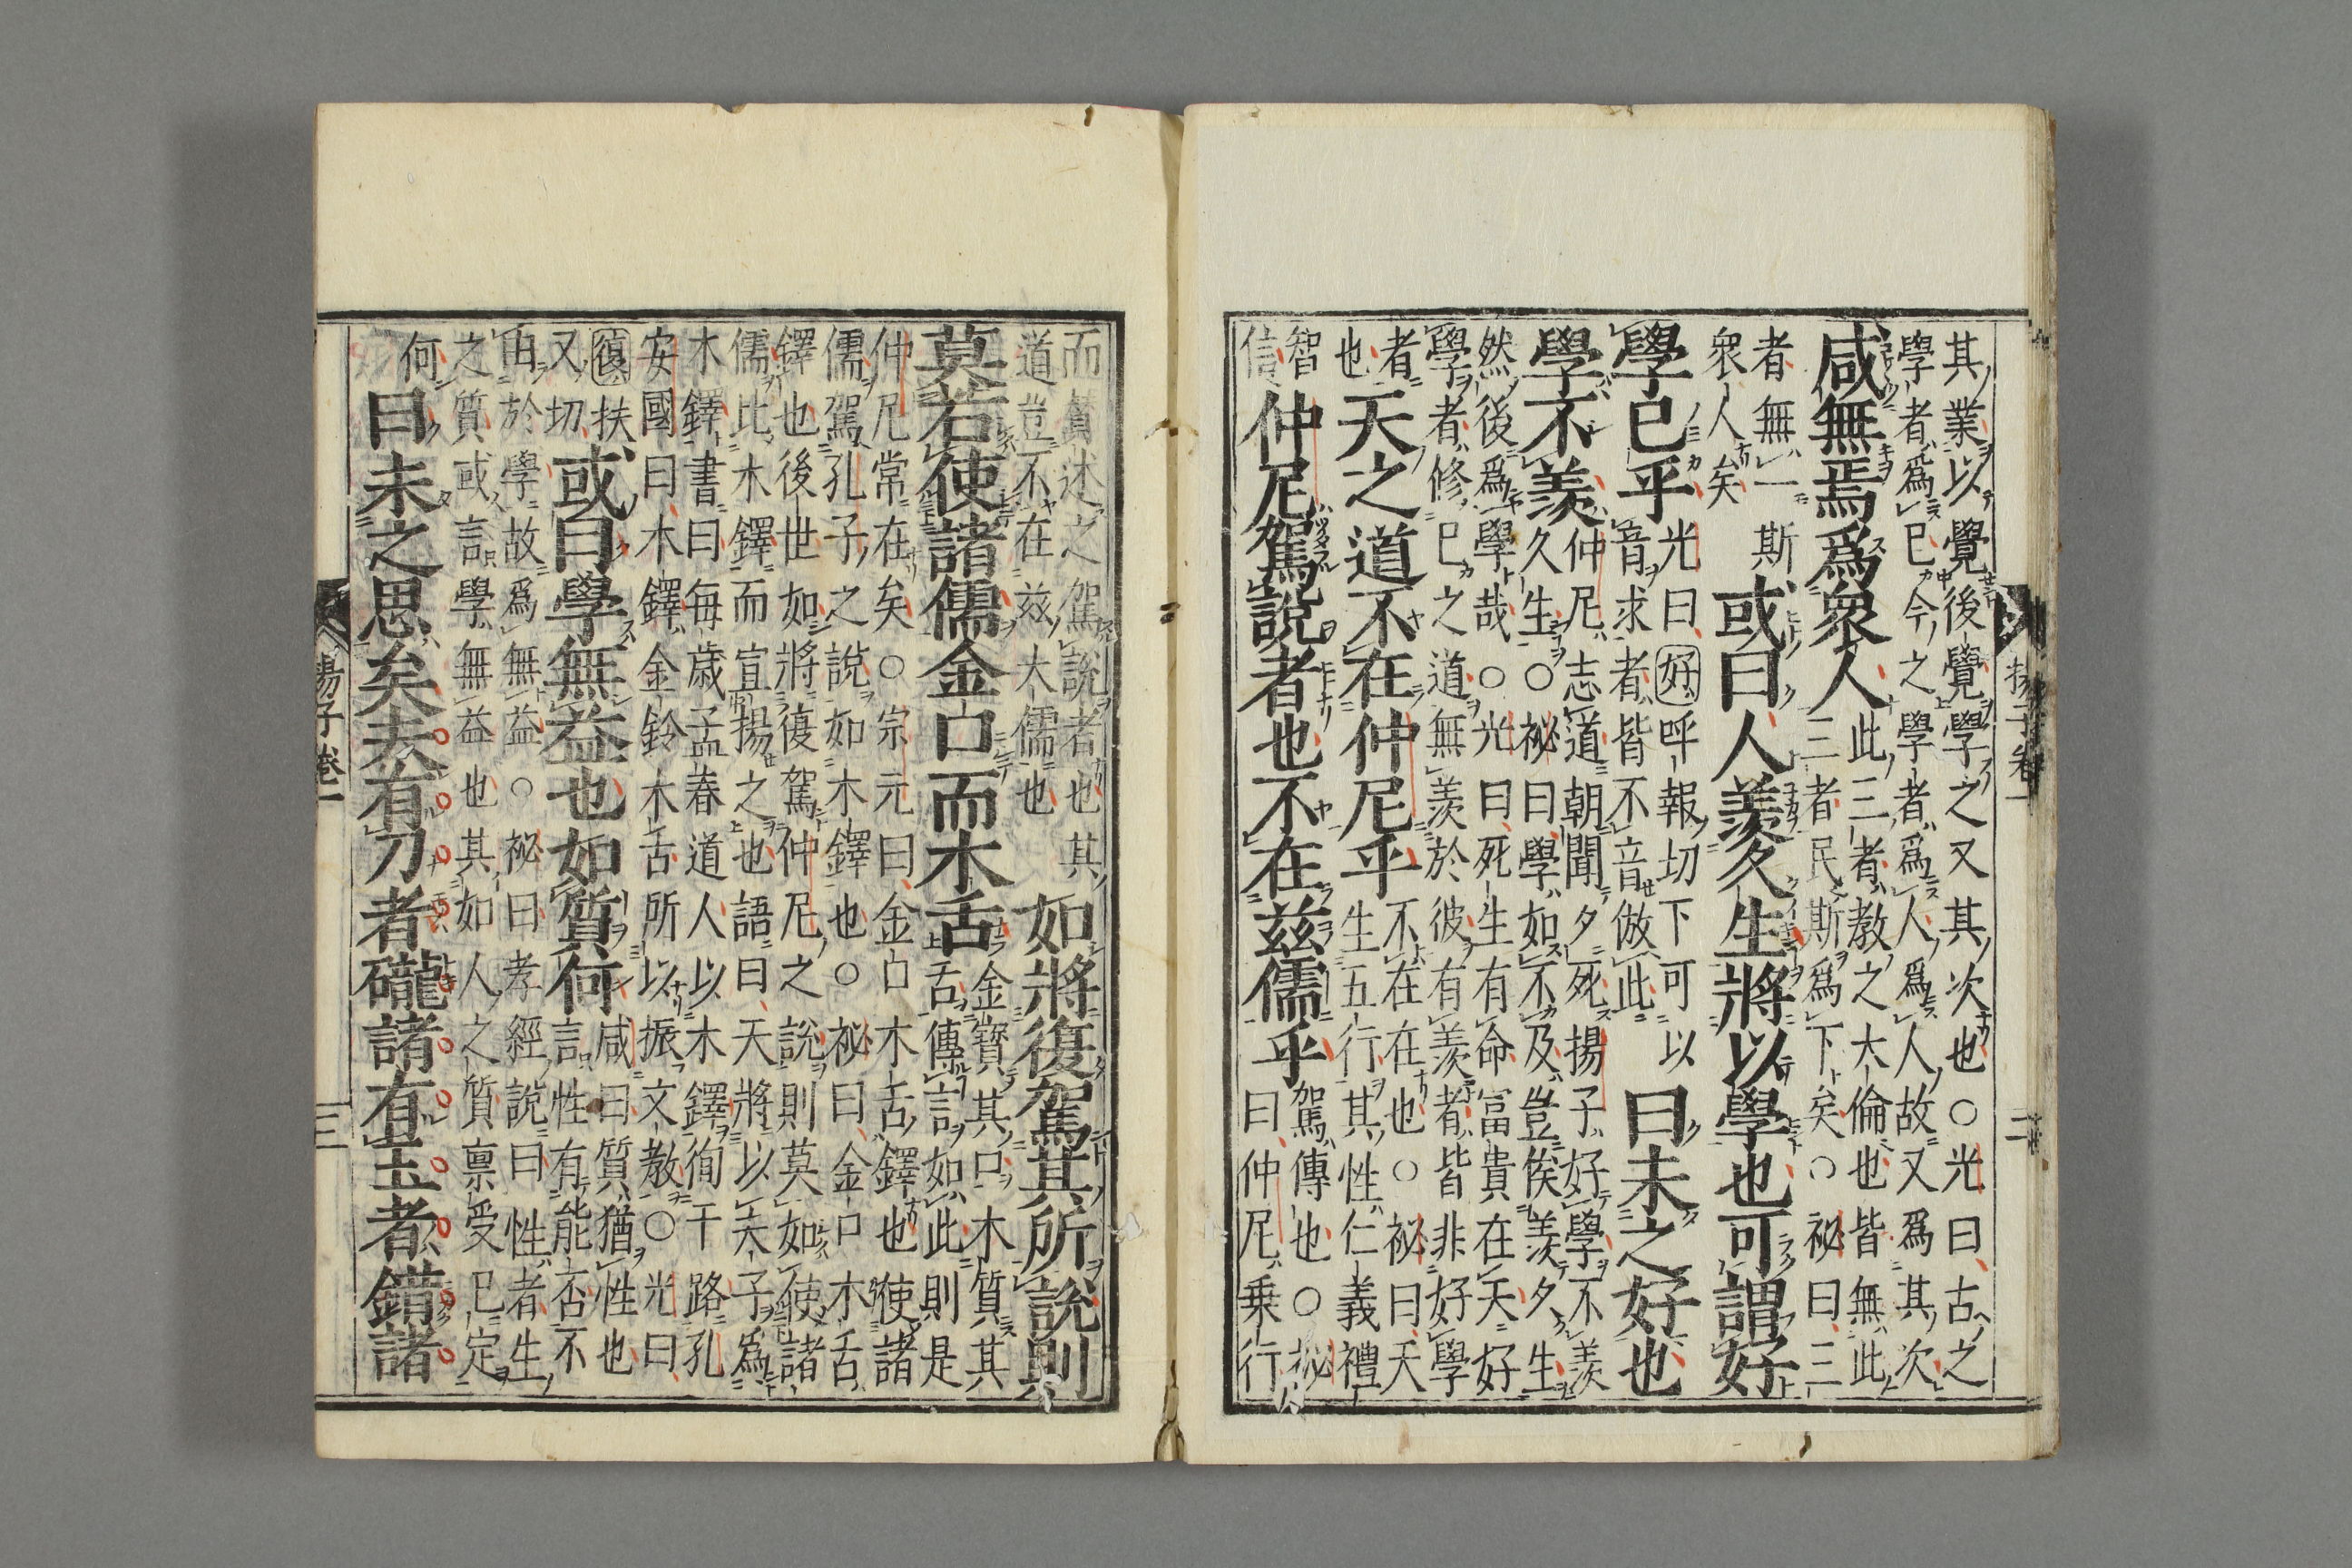 揚子卷一 二
其業以覺後覺學之又其次也○光曰古之
學者爲已今之學者爲人爲人故又爲其次
咸無焉爲衆人
此三者教之大倫也皆無此
三者民斯爲下矣○祕曰三
者無一斯
衆人矣
或曰人羨久生將以學也可謂好
學已乎
光曰好呼報切下可以
音求者皆不音倣此
曰未之好也
學不羨
仲尼志道朝聞夕死揚子好學不羨
久生○祕曰學如不及豈俟羨夕生
然後爲學哉○光曰死生有命富貴在天好
學者修已之道無羨於彼有羨者皆非好學
者
也
天之道不在仲尼乎
不在在也○祕曰天
生五行其性仁義禮
智
信
仲尼駕說者也不在茲儒乎
駕傳也○祕
曰仲尼乗行
而贊述之駕說者也其
道豈不在茲大儒也
如將復駕其所說則
莫若使諸儒金口而木舌
金寶其口木質其
舌傳言如此則是
仲尼常在矣○宗元曰金口木舌鐸也使諸
儒駕孔子之說如木鐸也○祕曰金口木舌
鐸也後世如將復駕仲尼之說則莫如使諸
儒比木鐸而宣揚之也語曰天將以夫子爲
木鐸書曰每歲孟春道人以木鐸徇于路孔
安國曰木鐸金鈴木舌所以振文教○光曰
復扶
又切
或曰學無益也如質何
咸曰質猶性也
言性有能否不
由於學故爲無益○祕曰孝經說曰性者生
之質或言學無益也其如人之質禀受已定
何
曰未之思矣夫有刀者礲諸有玉者錯諸
揚子卷一 三